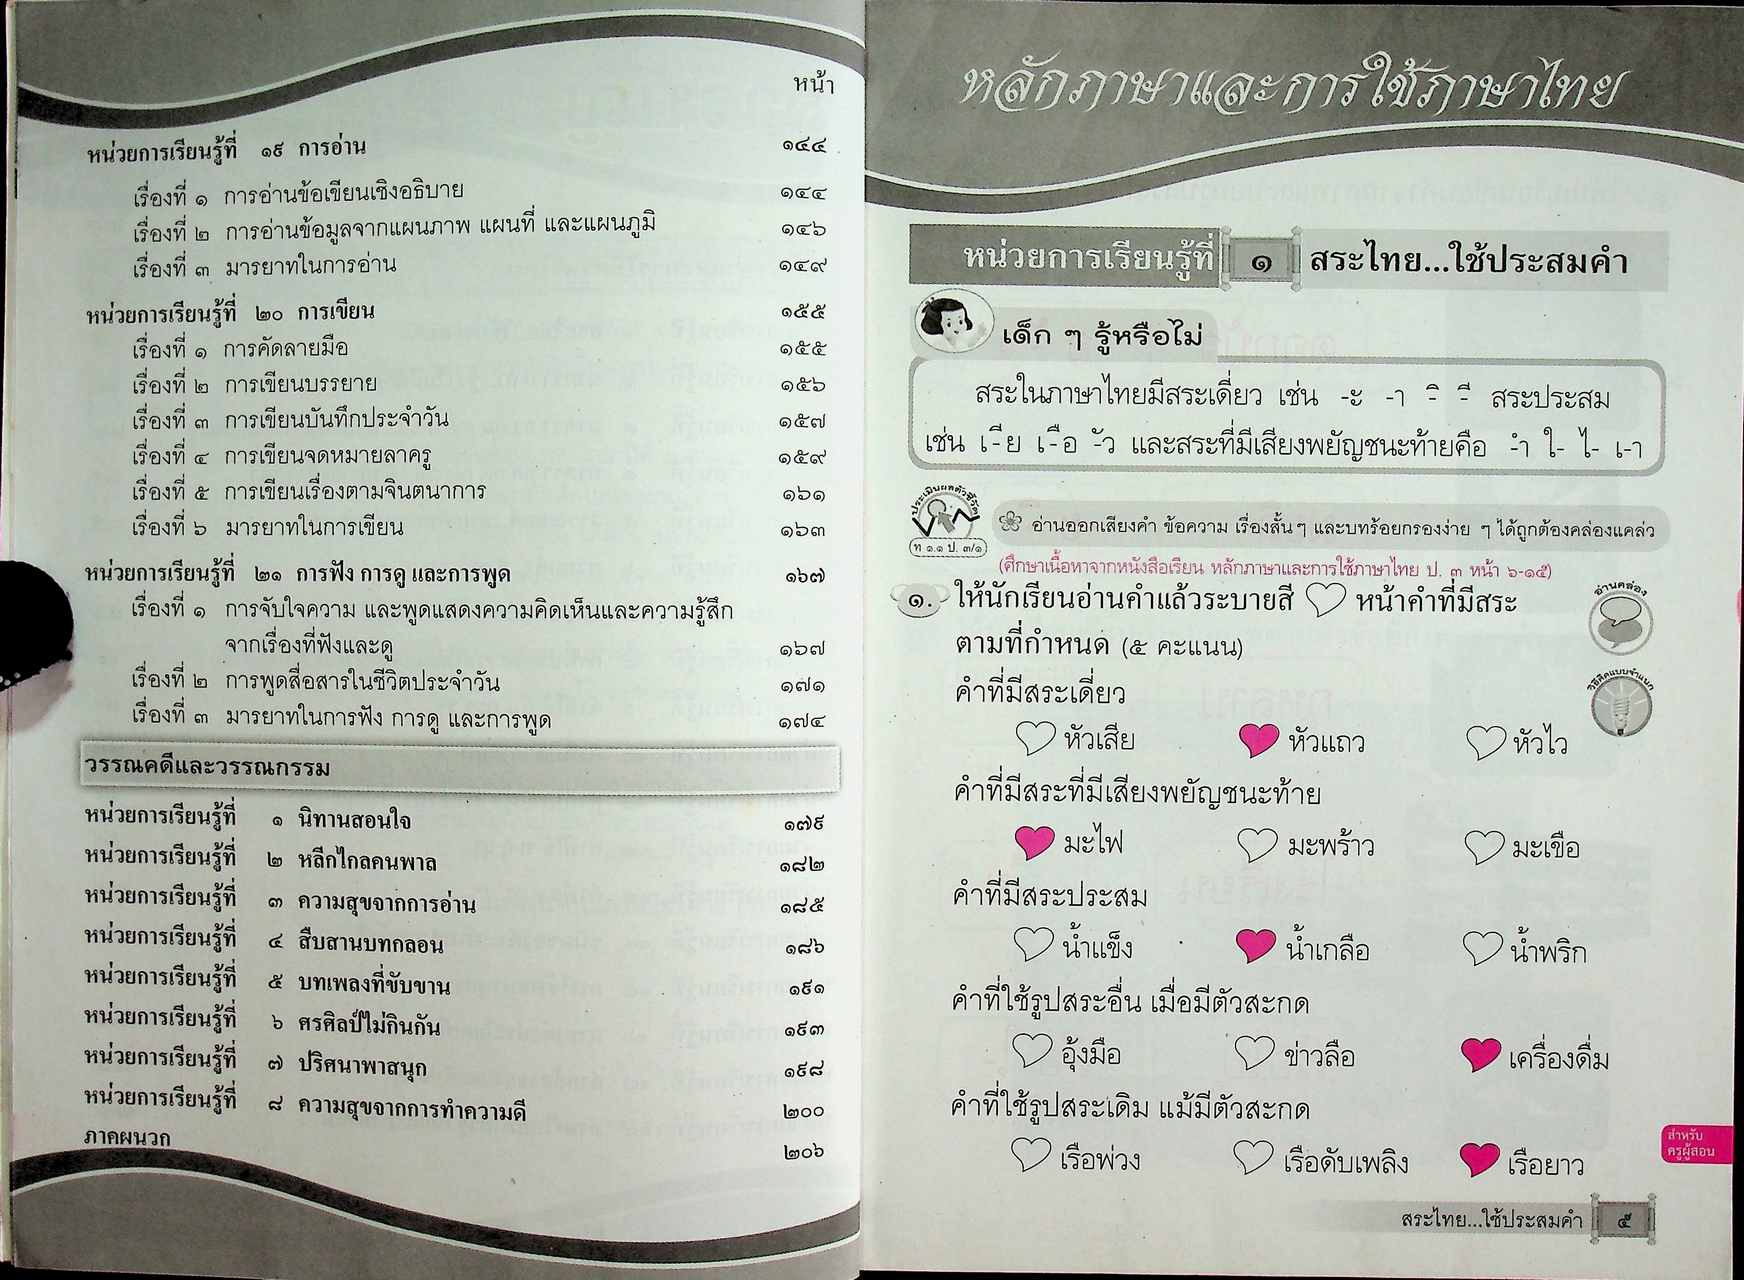 หน้า
หน่วยการเรียนรู้ที่ ๑๙ การอ่าน ๑๔๔
เรื่องที่ ๑ การอ่านข้อเขียนเชิงอธิบาย ๑๔๔
เรื่องที่ ๒ การอ่านข้อมูลจากแผนภาพ แผนที่ และแผนภูมิ ๑๔๖
เรื่องที่ ๓ มารยาทในการอ่าน ๑๔๙
หน่วยการเรียนรู้ที่ ๒๐ การเขียน ๑๕๕
เรื่องที่ ๑ การคัดลายมือ ๑๕๕
เรื่องที่ ๒ การเขียนบรรยาย ๑๕๖
เรื่องที่ ๓ การเขียนบันทึกประจำวัน ๑๕๗
เรื่องที่ ๔ การเขียนจดหมายลาครู ๑๕๙
เรื่องที่ ๕ การเขียนเรื่องตามจินตนาการ ๑๖๑
เรื่องที่ ๖ มารยาทในการเขียน ๑๖๓
หน่วยการเรียนรู้ที่ ๒๑ การฟัง การดู และการพูด ๑๖๗
เรื่องที่ ๑ การจับใจความ และพูดแสดงความคิดเห็นและความรู้สึก
จากเรื่องที่ฟังและดู ๑๖๗
เรื่องที่ ๒ การพูดสื่อสารในชีวิตประจำวัน ๑๗๑
เรื่องที่ ๓ มารยาทในการฟัง การดู และการพูด ๑๗๔
วรรณคดีและวรรณกรรม
หน่วยการเรียนรู้ที่ ๑ นิทานสอนใจ ๑๗๙
หน่วยการเรียนรู้ที่ ๒ หลีกไกลคนพาล ๑๘๒
หน่วยการเรียนรู้ที่ ๓ ความสุขจากการอ่าน ๑๘๕
หน่วยการเรียนรู้ที่ ๔ สืบสานบทกลอน ๑๘๖
หน่วยการเรียนรู้ที่ ๕ บทเพลงที่ขับขาน ๑๙๑
หน่วยการเรียนรู้ที่ ๖ ศรศิลป์ไม่กินกัน ๑๙๓
หน่วยการเรียนรู้ที่ ๗ ปริศนาพาสนุก ๑๙๘
หน่วยการเรียนรู้ที่ ๘ ความสุขจากการทำความดี ๒๐๐
ภาคผนวก ๒๐๖
หลักภาษาและการใช้ภาษาไทย
หน่วยการเรียนรู้ที่ ๑ สระไทย...ใช้ประสมคำ
เด็ก ๆ รู้หรือไม่
สระในภาษาไทยมีสระเดี่ยว เช่น -ะ -า -ิ -ี สระประสม
เช่น เ-ีย เ-ือ -ัว และสระที่มีเสียงพยัญชนะท้ายคือ -ำ ใ- ไ- เ-า
ประเมินผลตัวชี้วัด
ท ๑.๑ ป. ๓/๑
อ่านออกเสียงคำ ข้อความ เรื่องสั้นๆ และบทร้อยกรองง่าย ๆ ได้ถูกต้องคล่องแคล่ว
(ศึกษาเนื้อหาจากหนังสือเรียน หลักภาษาและการใช้ภาษาไทย ป. ๓ หน้า ๖-๑๕)
๑. ให้นักเรียนอ่านคำแล้วระบายสี หน้าคำที่มีสระ
ตามที่กำหนด (๕ คะแนน)
อ่านคล่อง
วิธีคิดแบบจำแนก
คำที่มีสระเดี่ยว
หัวเสีย หัวแถว หัวไว
คำที่มีสระที่มีเสียงพยัญชนะท้าย
มะไฟ มะพร้าว มะเขือ
คำที่มีสระประสม
น้ำแข็ง น้ำเกลือ น้ำพริก
คำที่ใช้รูปสระอื่น เมื่อมีตัวสะกด
อุ้งมือ ข่าวลือ เครื่องดื่ม
คำที่ใช้รูปสระเดิม แม้มีตัวสะกด
เรือพ่วง เรือดับเพลิง เรือยาว
สำหรับ
ครูผู้สอน
สระไทย...ใช้ประสมคำ ๕